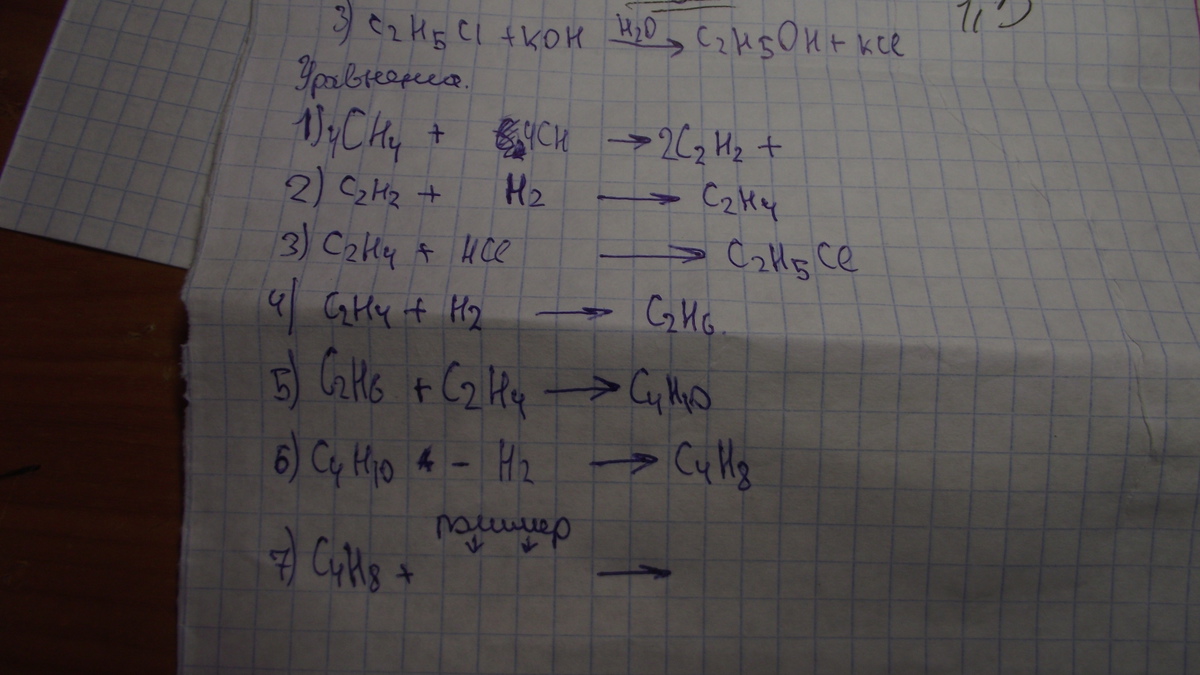 3) C2H5Cl + KOH H2O → C2H5OH + KCl
Уравнения.
1) 4CH4 + 4CH → 2C2H2 +
2) C2H2 + H2 → C2H4
3) C2H4 + HCl → C2H5Cl
4) C2H4 + H2 → C2H6.
5) C2H6 + C2H4 → C4H10
6) C4H10 - H2 → C4H8
полимер
↓ ↓
7) C4H8 + →